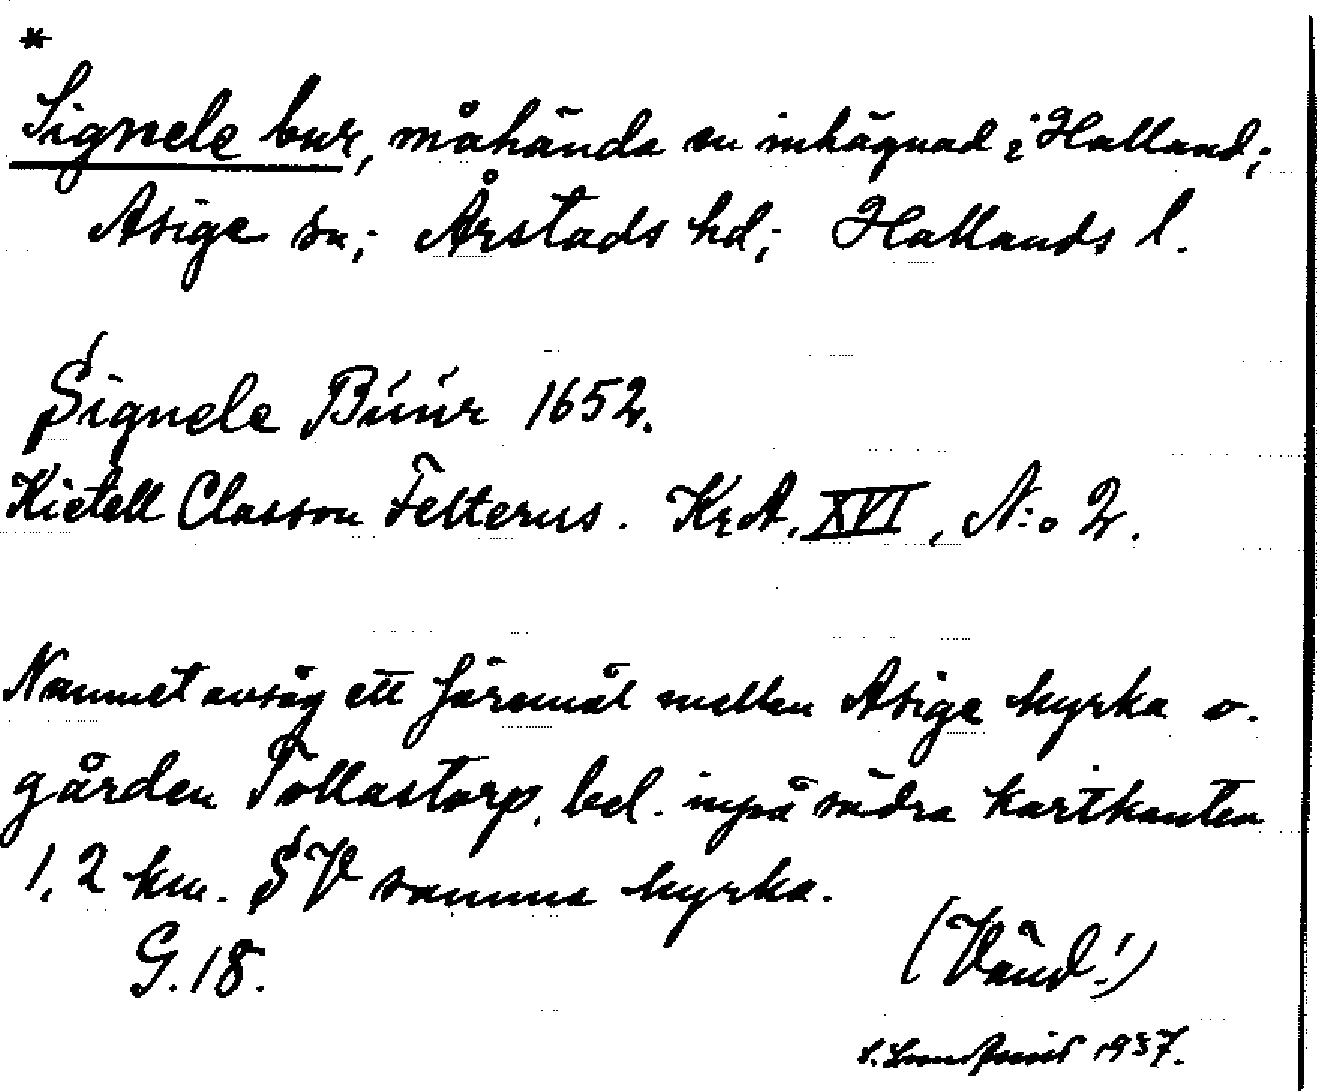 *
Signele bur, måhända en inhägnad i Halland;
Asige sn; Årstads hd; Hallands l.
Signele Búúr 1652.
Kietell Classon Felterus. KrA, XVI, N:o 2.
Namnet avsåg ett föremål mellan Asige kyrka o.
gården Tollastorp, bel. inpå södra kartkanten
1,2 km. SV samma kyrka.
G.18.
(Vänd!)
1937.